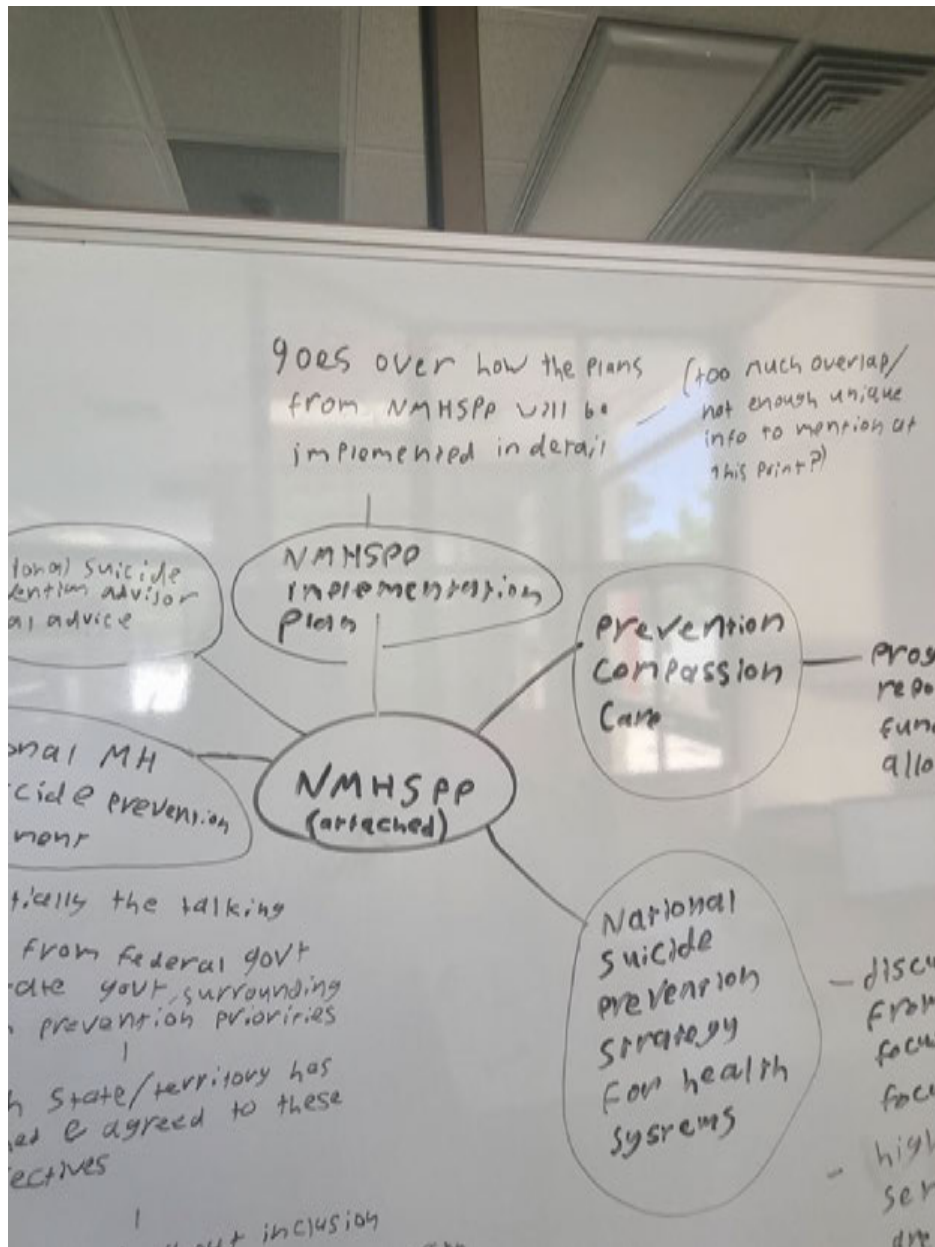 goes over how the plans
from NMHSPP will be
implemented in detail
(too much overlap/
not enough unique
info to mention at
this point?)
NMHSPP
implementation
plan
ional suicide
ention advisor
al advice
Prevention
Compassion
Care
prog
repo
fun
allo
onal MH
cide prevention
ment
NMHSPP
(attached)
tically the talking
from federal govt
ate govt surrounding
prevention priorities
h State/territory has
ed & agreed to these
ectives
out inclusion
National
suicide
prevention
strategy
for health
systems
- discu
from
focu
focu
- high
ser
are